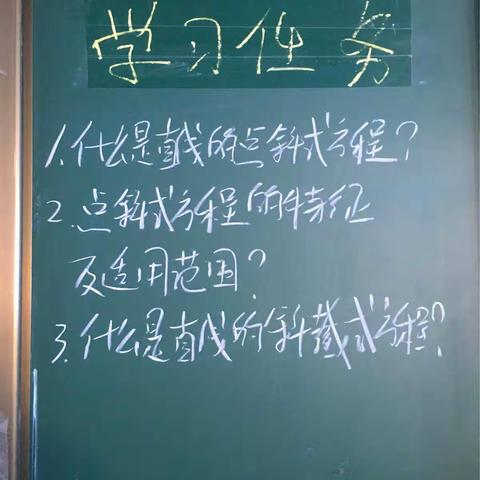 学习任务
1.什么是直线的点斜式方程?
2.点斜式方程的特征
及适用范围?
3.什么是直线的斜截式方程?